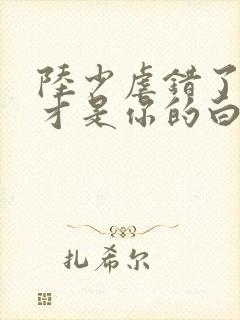 陸少虐错了
才是你的白
扎希尔